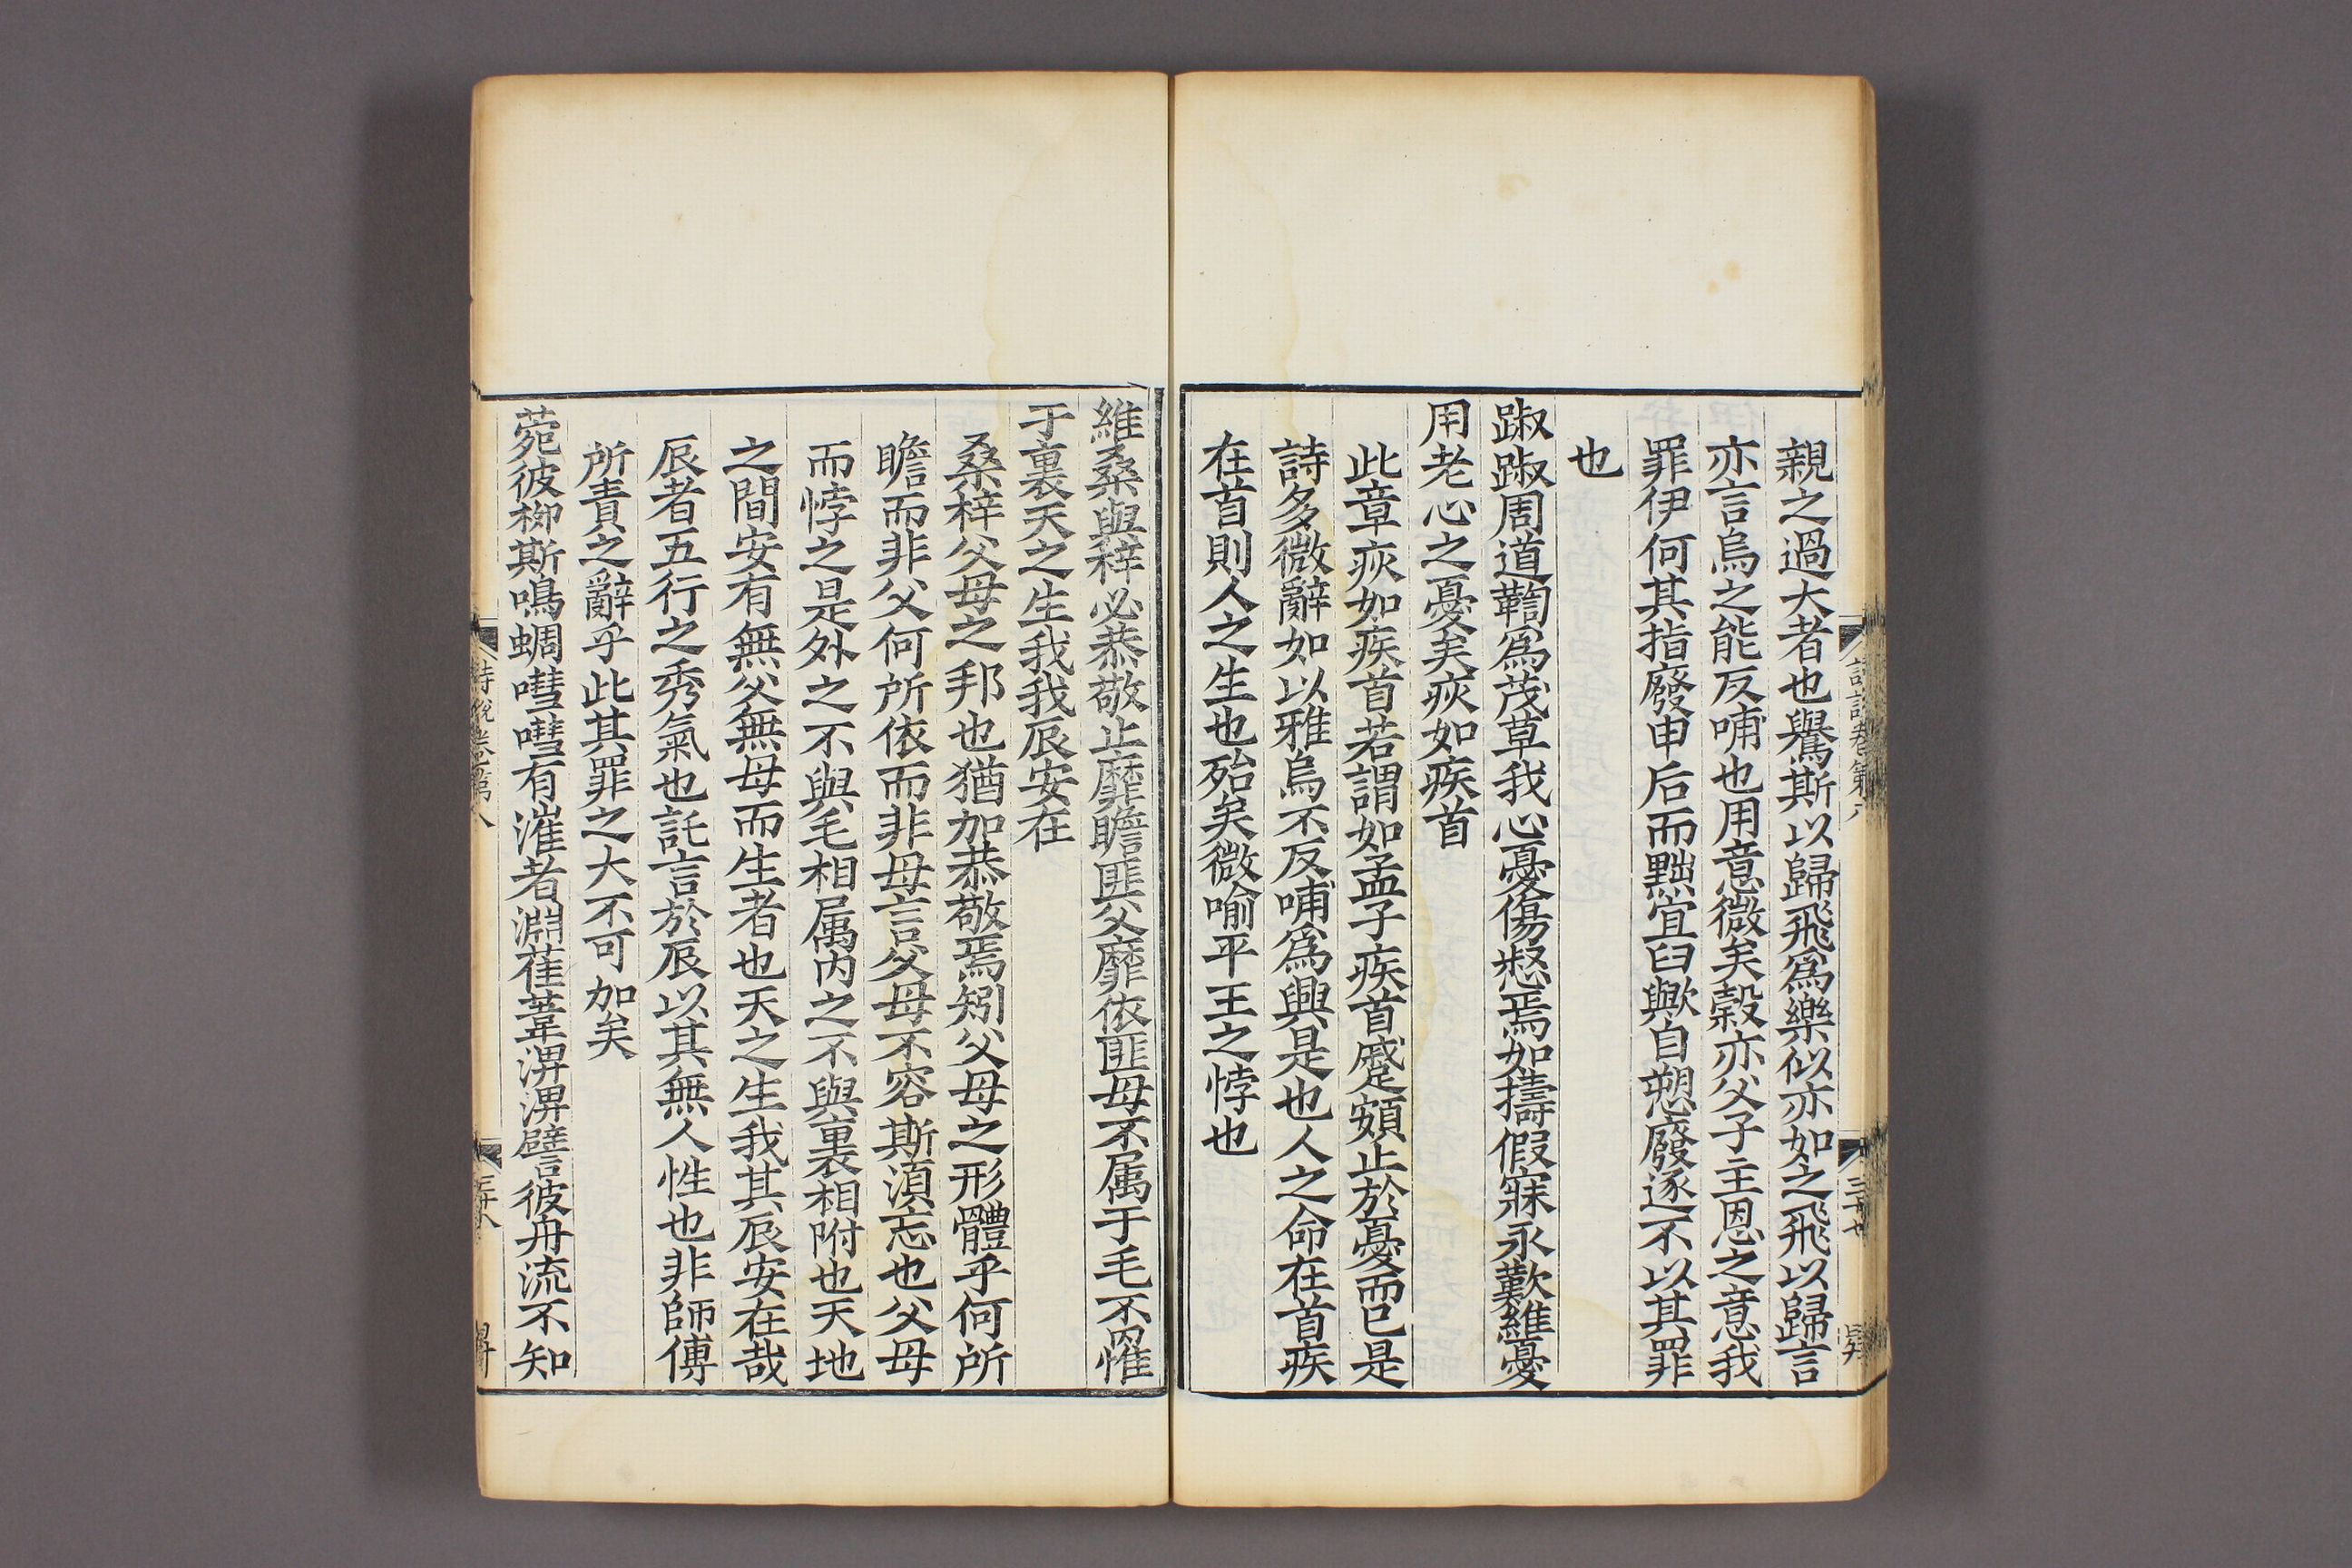 親之過大者也鸒斯以歸飛爲樂似亦如之飛以歸言
亦言烏之能反哺也用意微矣穀亦父子主恩之意我
罪伊何其指廢申后而黜宜臼歟自愬廢逐不以其罪
也
踧踧周道鞫爲茂草我心憂傷惄焉如擣假寐永歎維憂
用老心之憂矣疢如疾首
此章疢如疾首若謂如孟子疾首蹙頞止於憂而已是
詩多微辭如以雅烏不反哺爲興是也人之命在首疾
在首則人之生也殆矣微喻平王之悖也
詩說卷第八
三十七
維桑與梓必恭敬止靡瞻匪父靡依匪母不属于毛不罹
于裏天之生我我辰安在
桑梓父母之邦也猶加恭敬焉矧父母之形體乎何所
瞻而非父何所依而非母言父母不容斯湏忘也父母
而悖之是外之不與毛相属内之不與裏相附也天地
之間安有無父無母而生者也天之生我其辰安在哉
辰者五行之秀氣也託言於辰以其無人性也非師傅
所責之辭乎此其罪之大不可加矣
菀彼栁斯鳴蜩嘒嘒有漼者淵萑葦淠淠譬彼舟流不知
詩說卷第八
三十八